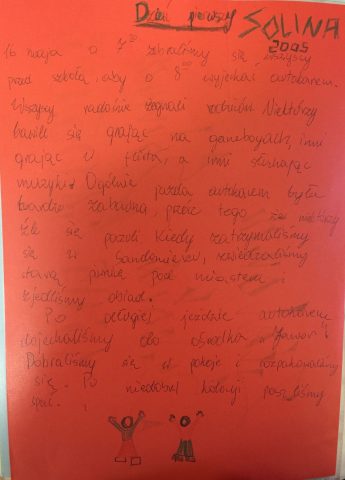 Dzień pierwszy SOLINA
2005
16 maja o 7³⁰ zebraliśmy się wszyscy
przed szkołą, aby o 8⁰⁰ wyjechać autokarem.
Wszyscy radośnie żegnali rodziców. Niektórzy
bawili się grając na gameboyach, inni
grając w flirta, a inni słuchając
muzyki. Ogólnie jazda autokarem była
bardzo zabawna, prócz tego że niektórzy
źle się czuli. Kiedy zatrzymaliśmy
się w Sandomierzu, zwiedzaliśmy
starą piwnicę pod miastem i
zjedliśmy obiad.
Po długiej jeździe autokarem
dojechaliśmy do ośrodka "Jawor".
Dobraliśmy się w pokoje i rozpakowaliśmy
się. Po niedobrej kolacji poszliśmy
spać.